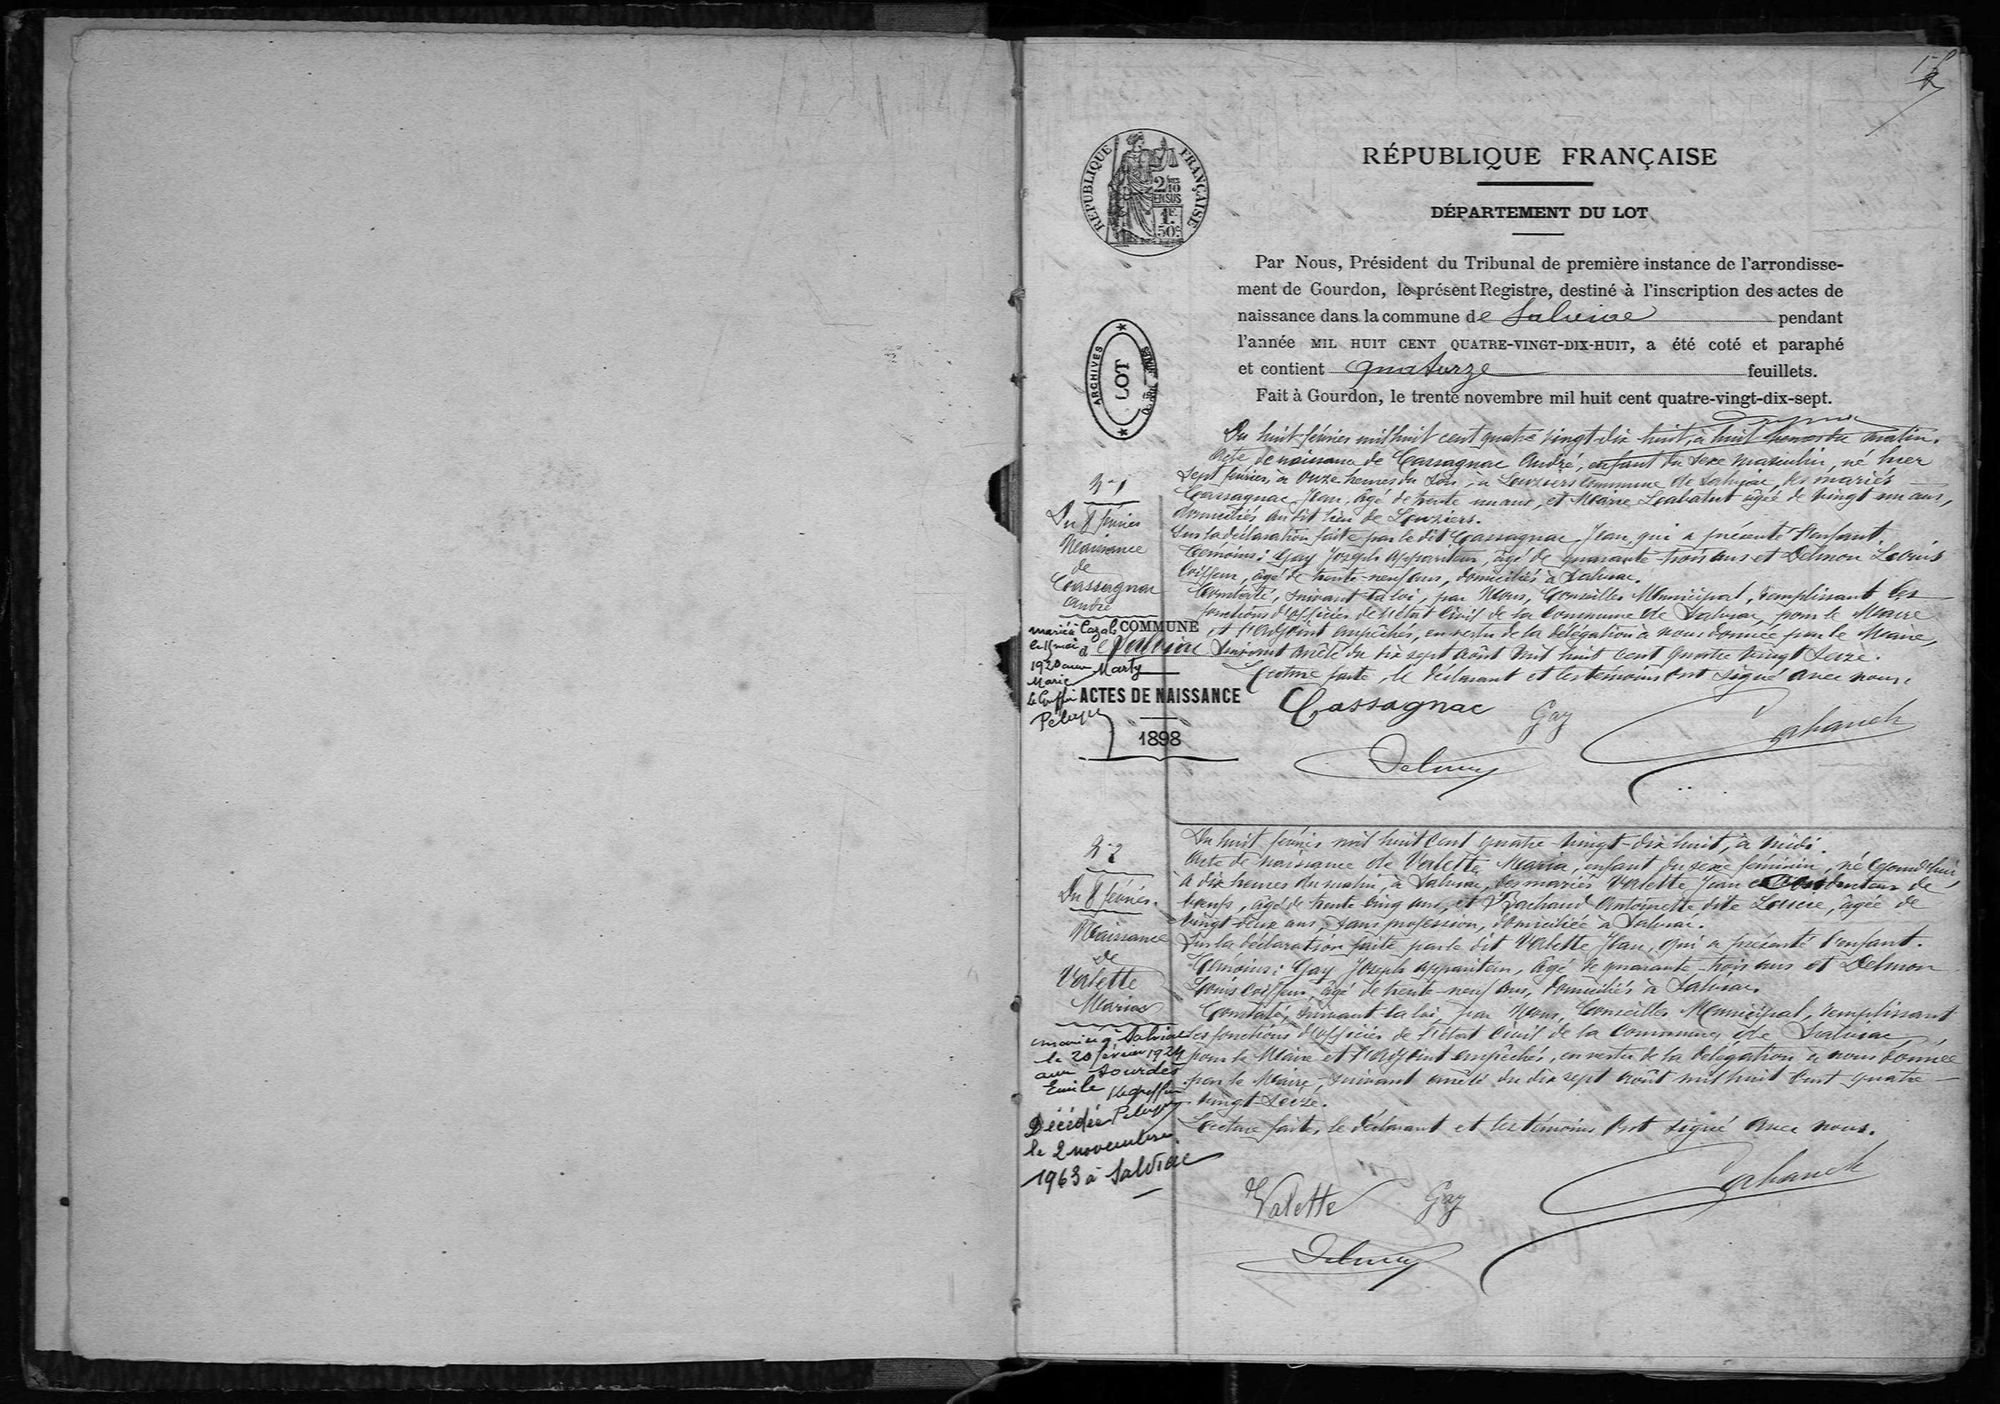 RÉPUBLIQUE FRANÇAISE
2/10 EN SUS
1F 50c
RÉPUBLIQUE FRANÇAISE
DÉPARTEMENT DU LOT
Par Nous, Président du Tribunal de première instance de l'arrondisse-
ment de Gourdon, le présent Registre, destiné à l'inscription des actes de
naissance dans la commune de Salviac pendant
l'année MIL HUIT CENT QUATRE-VINGT-DIX-HUIT, a été coté et paraphé
et contient quatorze feuillets.
Fait à Gourdon, le trente novembre mil huit cent quatre-vingt-dix-sept.
ARCHIVES
LOT
COMMUNE
de Salviac
ACTES DE NAISSANCE
1898
N° 1
Du 8 février
Naissance
de
Cassagnac
André
marié à Cazals
le
1920 avec
Marie Marty
le Greffier
Du huit février mil huit cent quatre vingt-dix huit, à huit heures du matin.
Acte de naissance de Cassagnac André, enfant du sexe masculin, né hier
sept février, à onze heures du soir, à Louziers commune de Salviac, des mariés
Cassagnac Jean, âgé de trente un ans, et Marie Labatut âgée de vingt un ans,
domiciliés au dit lieu de Louziers.
Sur la déclaration faite par le dit Cassagnac Jean, qui a présenté l'enfant.
Témoins : Gay Joseph appariteur, âgé de quarante-trois ans et Delmon Louis
coiffeur, âgé de trente-neuf ans, domiciliés à Salviac.
Constaté, suivant la loi, par Nous, Conseiller Municipal, remplissant les
fonctions d'officier de l'état civil de la commune de Salviac, pour le Maire
et l'adjoint empêchés, en vertu de la délégation à nous donnée par le Maire,
suivant arrêté du dix sept août mil huit cent quatre vingt seize.
Lecture faite, le déclarant et les témoins ont signé avec nous.
Cassagnac Gay
Delmon
N° 2
Du 8 février.
Naissance
de
Valette
Maria
mariée à Salviac
le 20 février 1924
avec Sourdès
Emile le greffier
Décédée
le 2 novembre
1963 à Salviac
Du huit février mil huit cent quatre vingt-dix huit, à midi.
Acte de naissance de Valette Maria, enfant du sexe féminin, né aujourd'hui
à dix heures du matin, à Salviac, des mariés Valette Jean conducteur de
bœufs, âgé de trente cinq ans, et Antoinette dite Louise, âgée de
vingt-deux ans, sans profession, domiciliée à Salviac.
Sur la déclaration faite par le dit Valette Jean, qui a présenté l'enfant.
Témoins : Gay Joseph appariteur, âgé de quarante-trois ans et Delmon
Louis coiffeur, âgé de trente-neuf ans, domiciliés à Salviac.
Constaté, suivant la loi, par Nous, Conseiller Municipal, remplissant
les fonctions d'officier de l'état civil de la commune de Salviac
pour le Maire et l'adjoint empêchés, en vertu de la délégation à nous donnée
par le Maire, suivant arrêté du dix sept août mil huit cent quatre
vingt seize.
Lecture faite, le déclarant et les témoins ont signé avec nous.
Valette Gay
Delmon